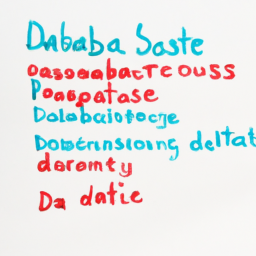 Dababa Saste
oasoeabacTeouss
Poaspatase
Dolobaciotocje
Dobetrinsioong deltat
daromty
Da datie